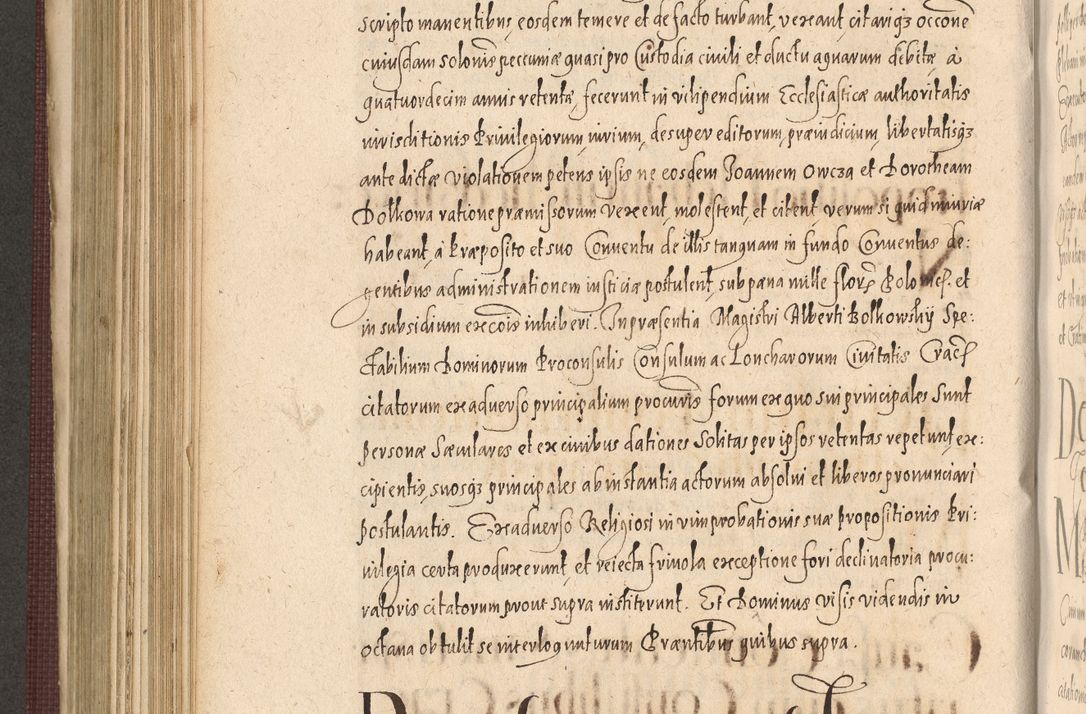 scripto manentibus, eosdem temere et de facto turbant, vexant, citariq3 occone
cuiusdam solonis peccuniæ quasi pro Custodia civili et ductu aquarum debitæ à
quatuordecim annis retentæ, fecerunt in vilipendium Ecclesiasticæ authoritatis
iurisditionis Privilegiorum, iurium, desuper editorum, præiudicium, libertatisq3
ante dictæ violationem petens ipsis ne eosdem Joannem Owcza et Dorotheam
Dolkowa ratione præmissorum vexent, molestent, et citent verum si quid iniuriæ
habeant, à Præposito et suo Conventu de illis tanquam in fundo Conventus de:
gentibus administrationem iusticiæ postulent, sub pæna mille flor Polonic. et
in subsidium excois inhiberi. In præsentia Magistri Alberti Bolkowskÿ Spe:
ctabilium Dominorum Proconsulis Consulum ac Loncharorum Civitatis Crac
citatorum ex adverso principalium procuris forum ex quo sui principales Sunt
personæ Sæculares et ex civibus dationes Solitas per ipsos retentas repetunt, ex:
cipientis, suosq3 principales ab instantia actorum absolvi et liberos pronunciari
postulantis. Ex adverso Religiosi in vim probationis suæ propositionis Pri:
vilegia certa produxerunt, et reiecta frivola exceptione fori declinatoria procu:
ratoris citatorum prout supra institerunt. Et Dominus visis videndis in
octava obtulit se interloquuturum Præntibus quibus supra.